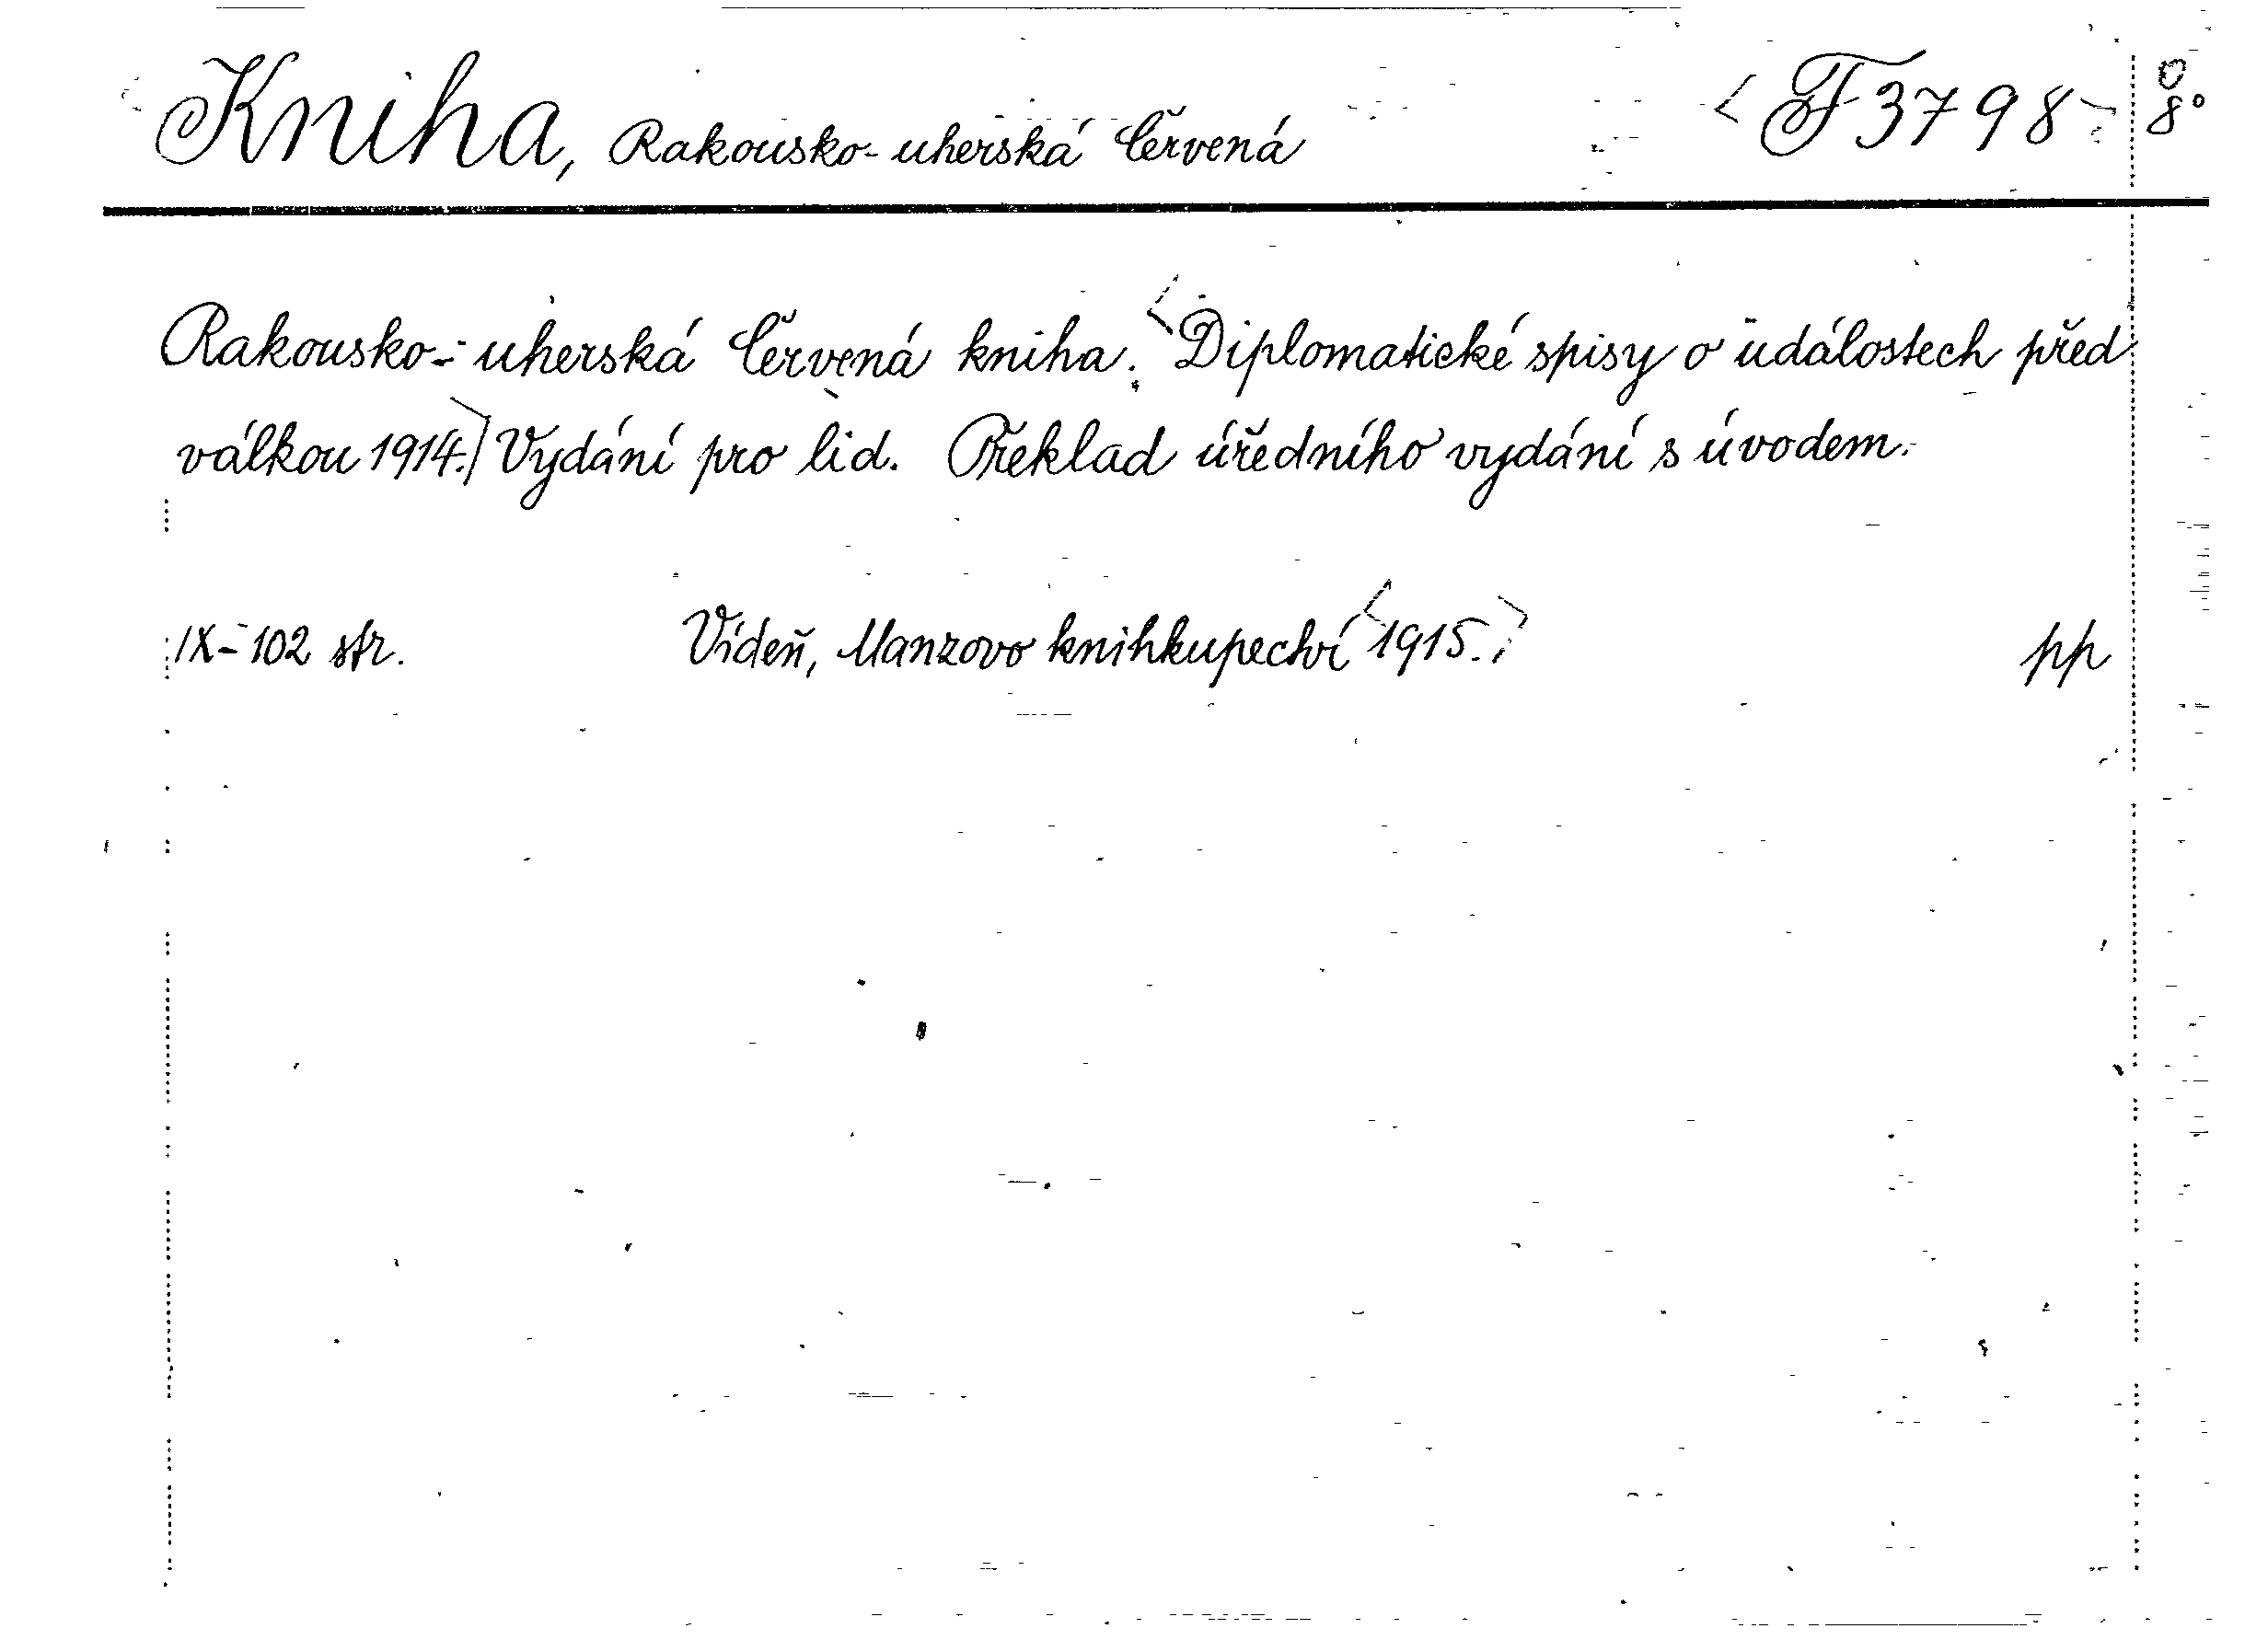 Kniha, Rakousko-uherská Červená <F 3798> 8°
Rakousko-uherská Červená kniha. <Diplomatické spisy o událostech před
válkou 1914.> Vydání pro lid. Překlad úředního vydání s úvodem.
IX-102 str. Vídeň, Manzovo knihkupectví <1915.> pp